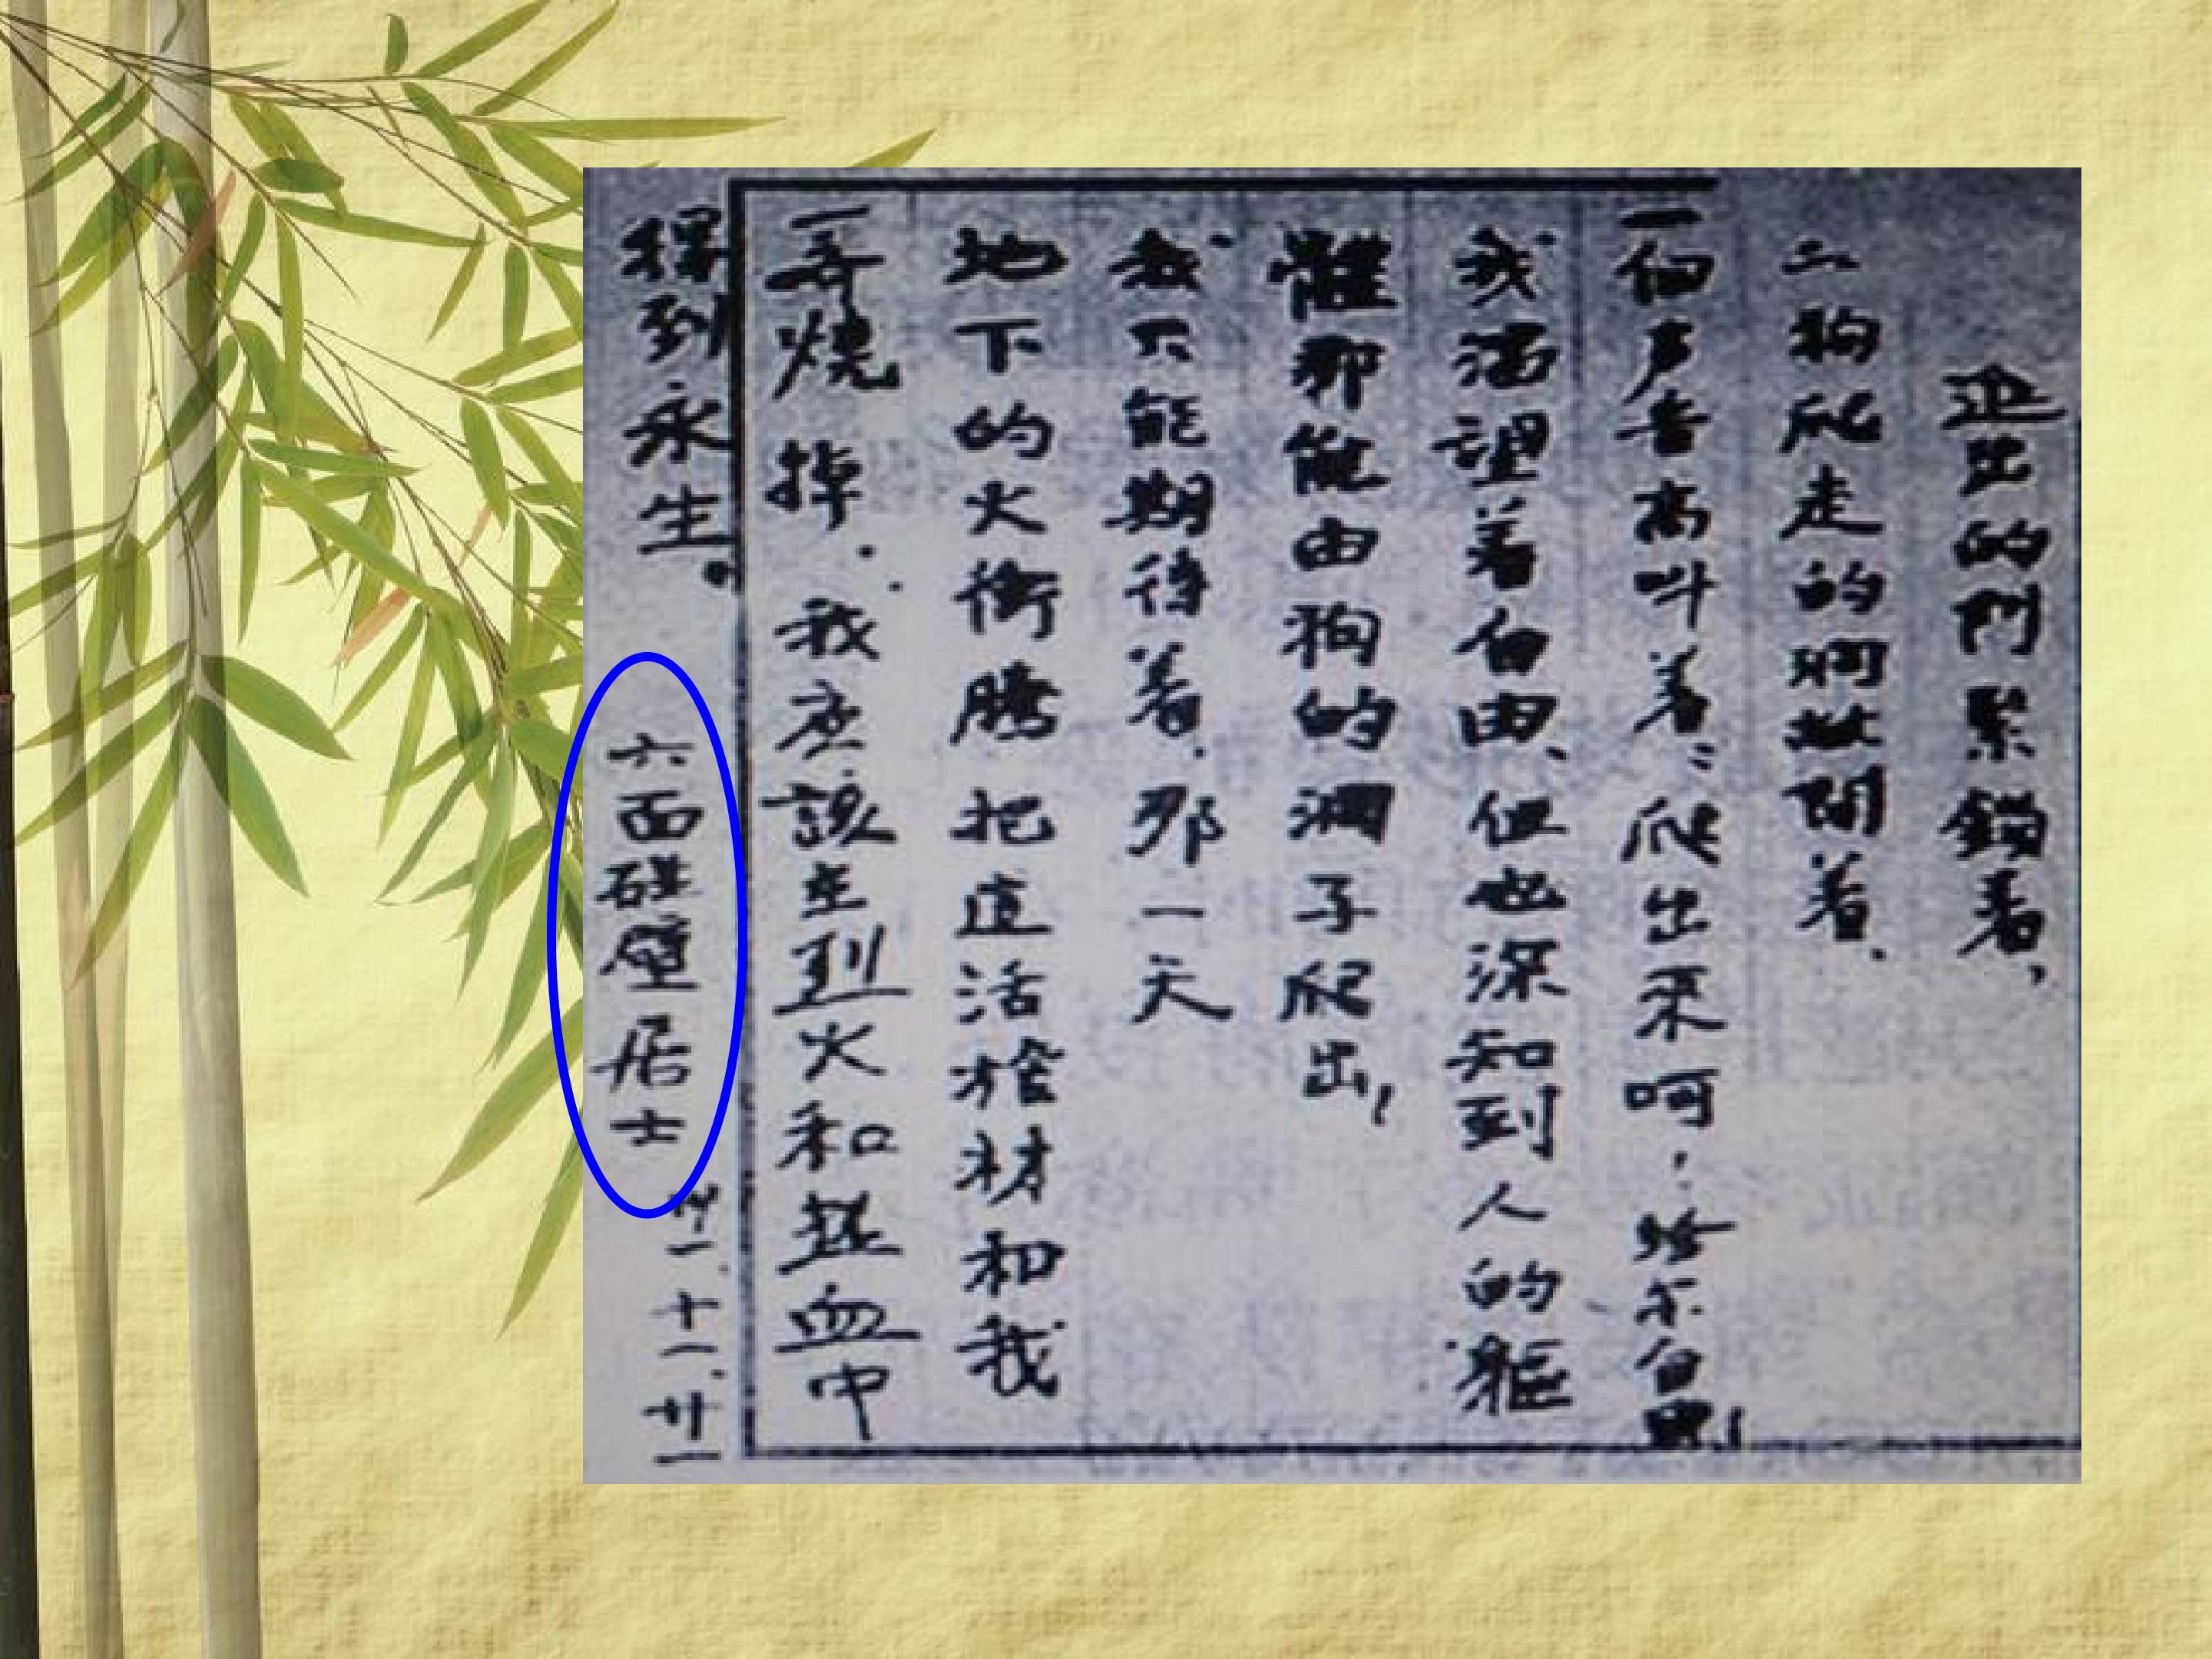 進出的門紧鎖着,
狗爬走的洞敞開着.
一個声音高叫着:爬出來呵!給尔自由!
我渴望着自由、但也深知到人的軀
體那能由狗的洞子爬出!
我只能期待着、那一天
地下的火衝騰把這活棺材和我
一齊燒掉.我应該在烈火和热血中
得到永生。 六面碰壁居士 卅一.十一.廿一